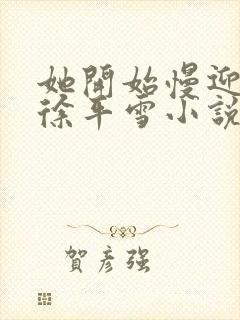 她開始慢迎
徐平雪小說
賀彥強